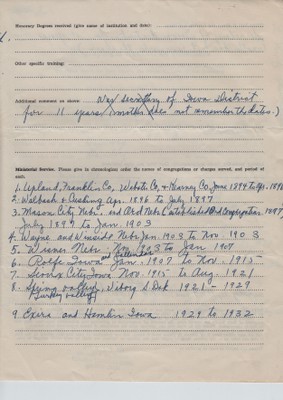 Honorary Degrees received (give name of institution and date):
Other specific training:
Additional comment on above: Was Secretary of Iowa District
for 11 years (mother does not remember the dates.)
Ministerial Service. Please give in chronological order the names of congregations or charges served, and period of each.
1. Upland, Franklin Co, Webster Co, & Harney Co. June 1894 to Apr. 1896
2. Walbach & Cushing Apr. 1896 to July 1897
3. Mason City Nebr. and Ord Nebr. (established Ord Congregation 1897)
July 1897 to Jan 1903
4. Wayne and Winside Nebr Jan. 1903 to Nov 1903
5. Wisner Nebr. Nov 1903 to Jan 1907
6. Rolfe, Iowa and Jan. 1907 to Nov. 1915
7. Sioux City, Iowa Nov. 1915 to Aug. 1921
8. Spring Valley, Viborg S Dak 1921 - 1929
(Turkey Valley)
9. Exira and Hamlin Iowa 1929 to 1932